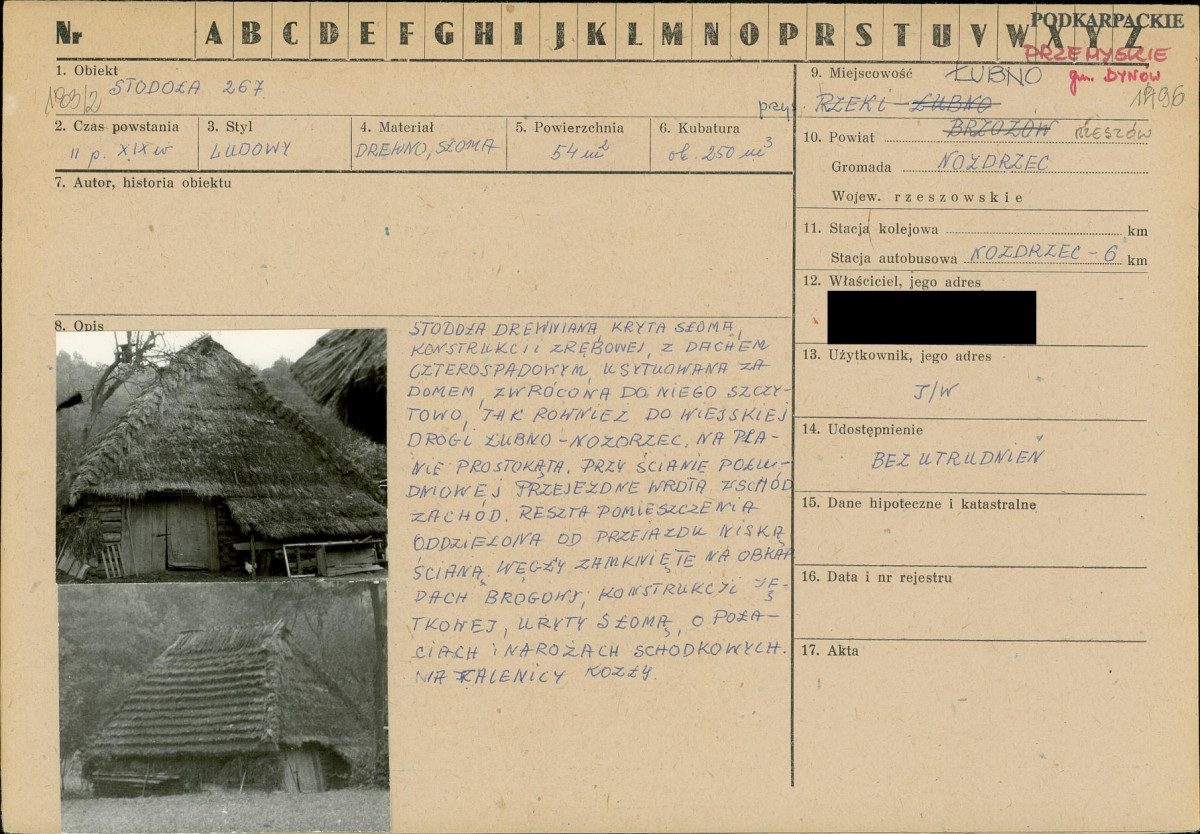 Nr A B C D E F G H I J K L M N O P R S T U V W X Y Z
PODKARPACKIE
PRZEMYSKIE
gm. DYNÓW
1. Obiekt
STODOŁA 267
2. Czas powstania
II p. XIX w
3. Styl
LUDOWY
4. Materiał
DREWNO, SŁOMA
5. Powierzchnia
54 m²
6. Kubatura
ok. 250 m³
7. Autor, historia obiektu
8. Opis
STODOŁA DREWNIANA KRYTA SŁOMĄ,
KONSTRUKCJI ZRĘBOWEJ, Z DACHEM
CZTEROSPADOWYM, USYTUOWANA ZA
DOMEM, ZWRÓCONA DO NIEGO SZCZY-
TOWO, JAK RÓWNIEŻ DO WIEJSKIEJ
DROGI ŁUBNO-NOZDRZEC, NA PLA-
NIE PROSTOKĄTA. PRZY ŚCIANIE POŁU-
DNIOWEJ PRZEJEZDNE WROTA WSCHÓD
ZACHÓD. RESZTA POMIESZCZENIA
ODDZIELONA OD PRZEJAZDU NISKĄ
ŚCIANĄ. WĘGŁY ZAMKNIĘTE NA OBŁAP
DACH BROGOWY, KONSTRUKCJI JĘ-
TKOWEJ, KRYTY SŁOMĄ, O POŁA-
CIACH I NAROŻACH SCHODKOWYCH.
NA KALENICY KOZŁY.
9. Miejscowość ŁUBNO
przys. RZEKI - ŁUBNO
1496
10. Powiat BRZOZÓW RZESZÓW
Gromada NOZDRZEC
Wojew. rzeszowskie
11. Stacja kolejowa km
Stacja autobusowa NOZDRZEC - 6 km
12. Właściciel, jego adres
13. Użytkownik, jego adres
J/W
14. Udostępnienie
BEZ UTRUDNIEŃ
15. Dane hipoteczne i katastralne
16. Data i nr rejestru
17. Akta